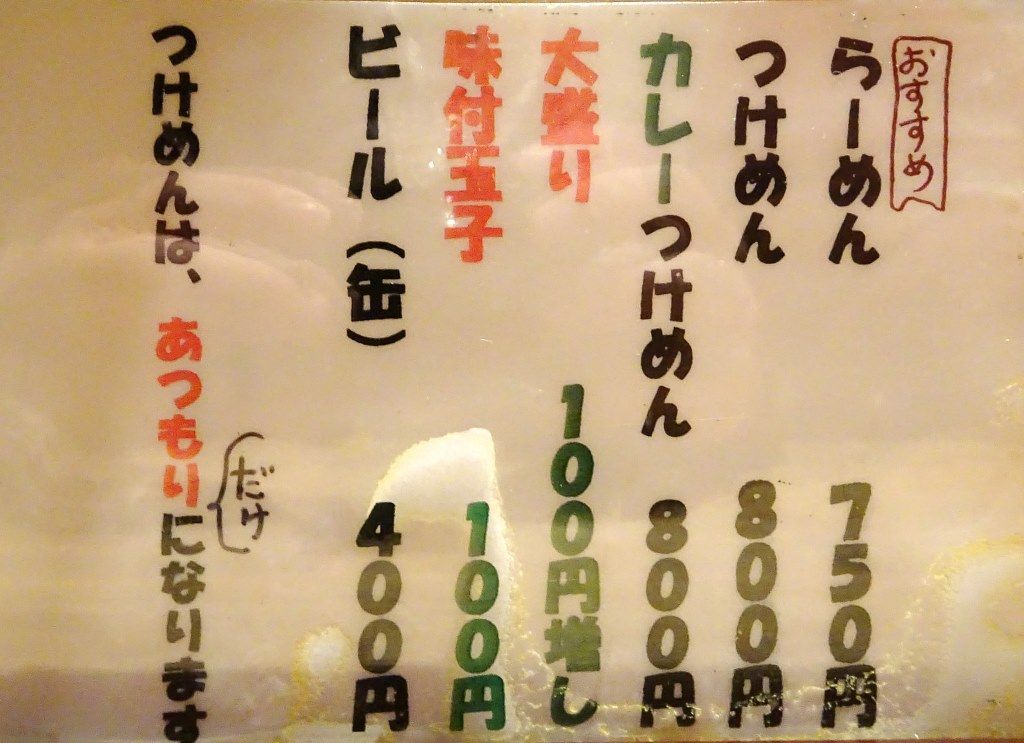 おすすめ
らーめん 750円
つけめん 800円
カレーつけめん 800円
大盛り 100円増し
味付玉子 100円
ビール（缶） 400円
だけ
つけめんは、あつもりになります